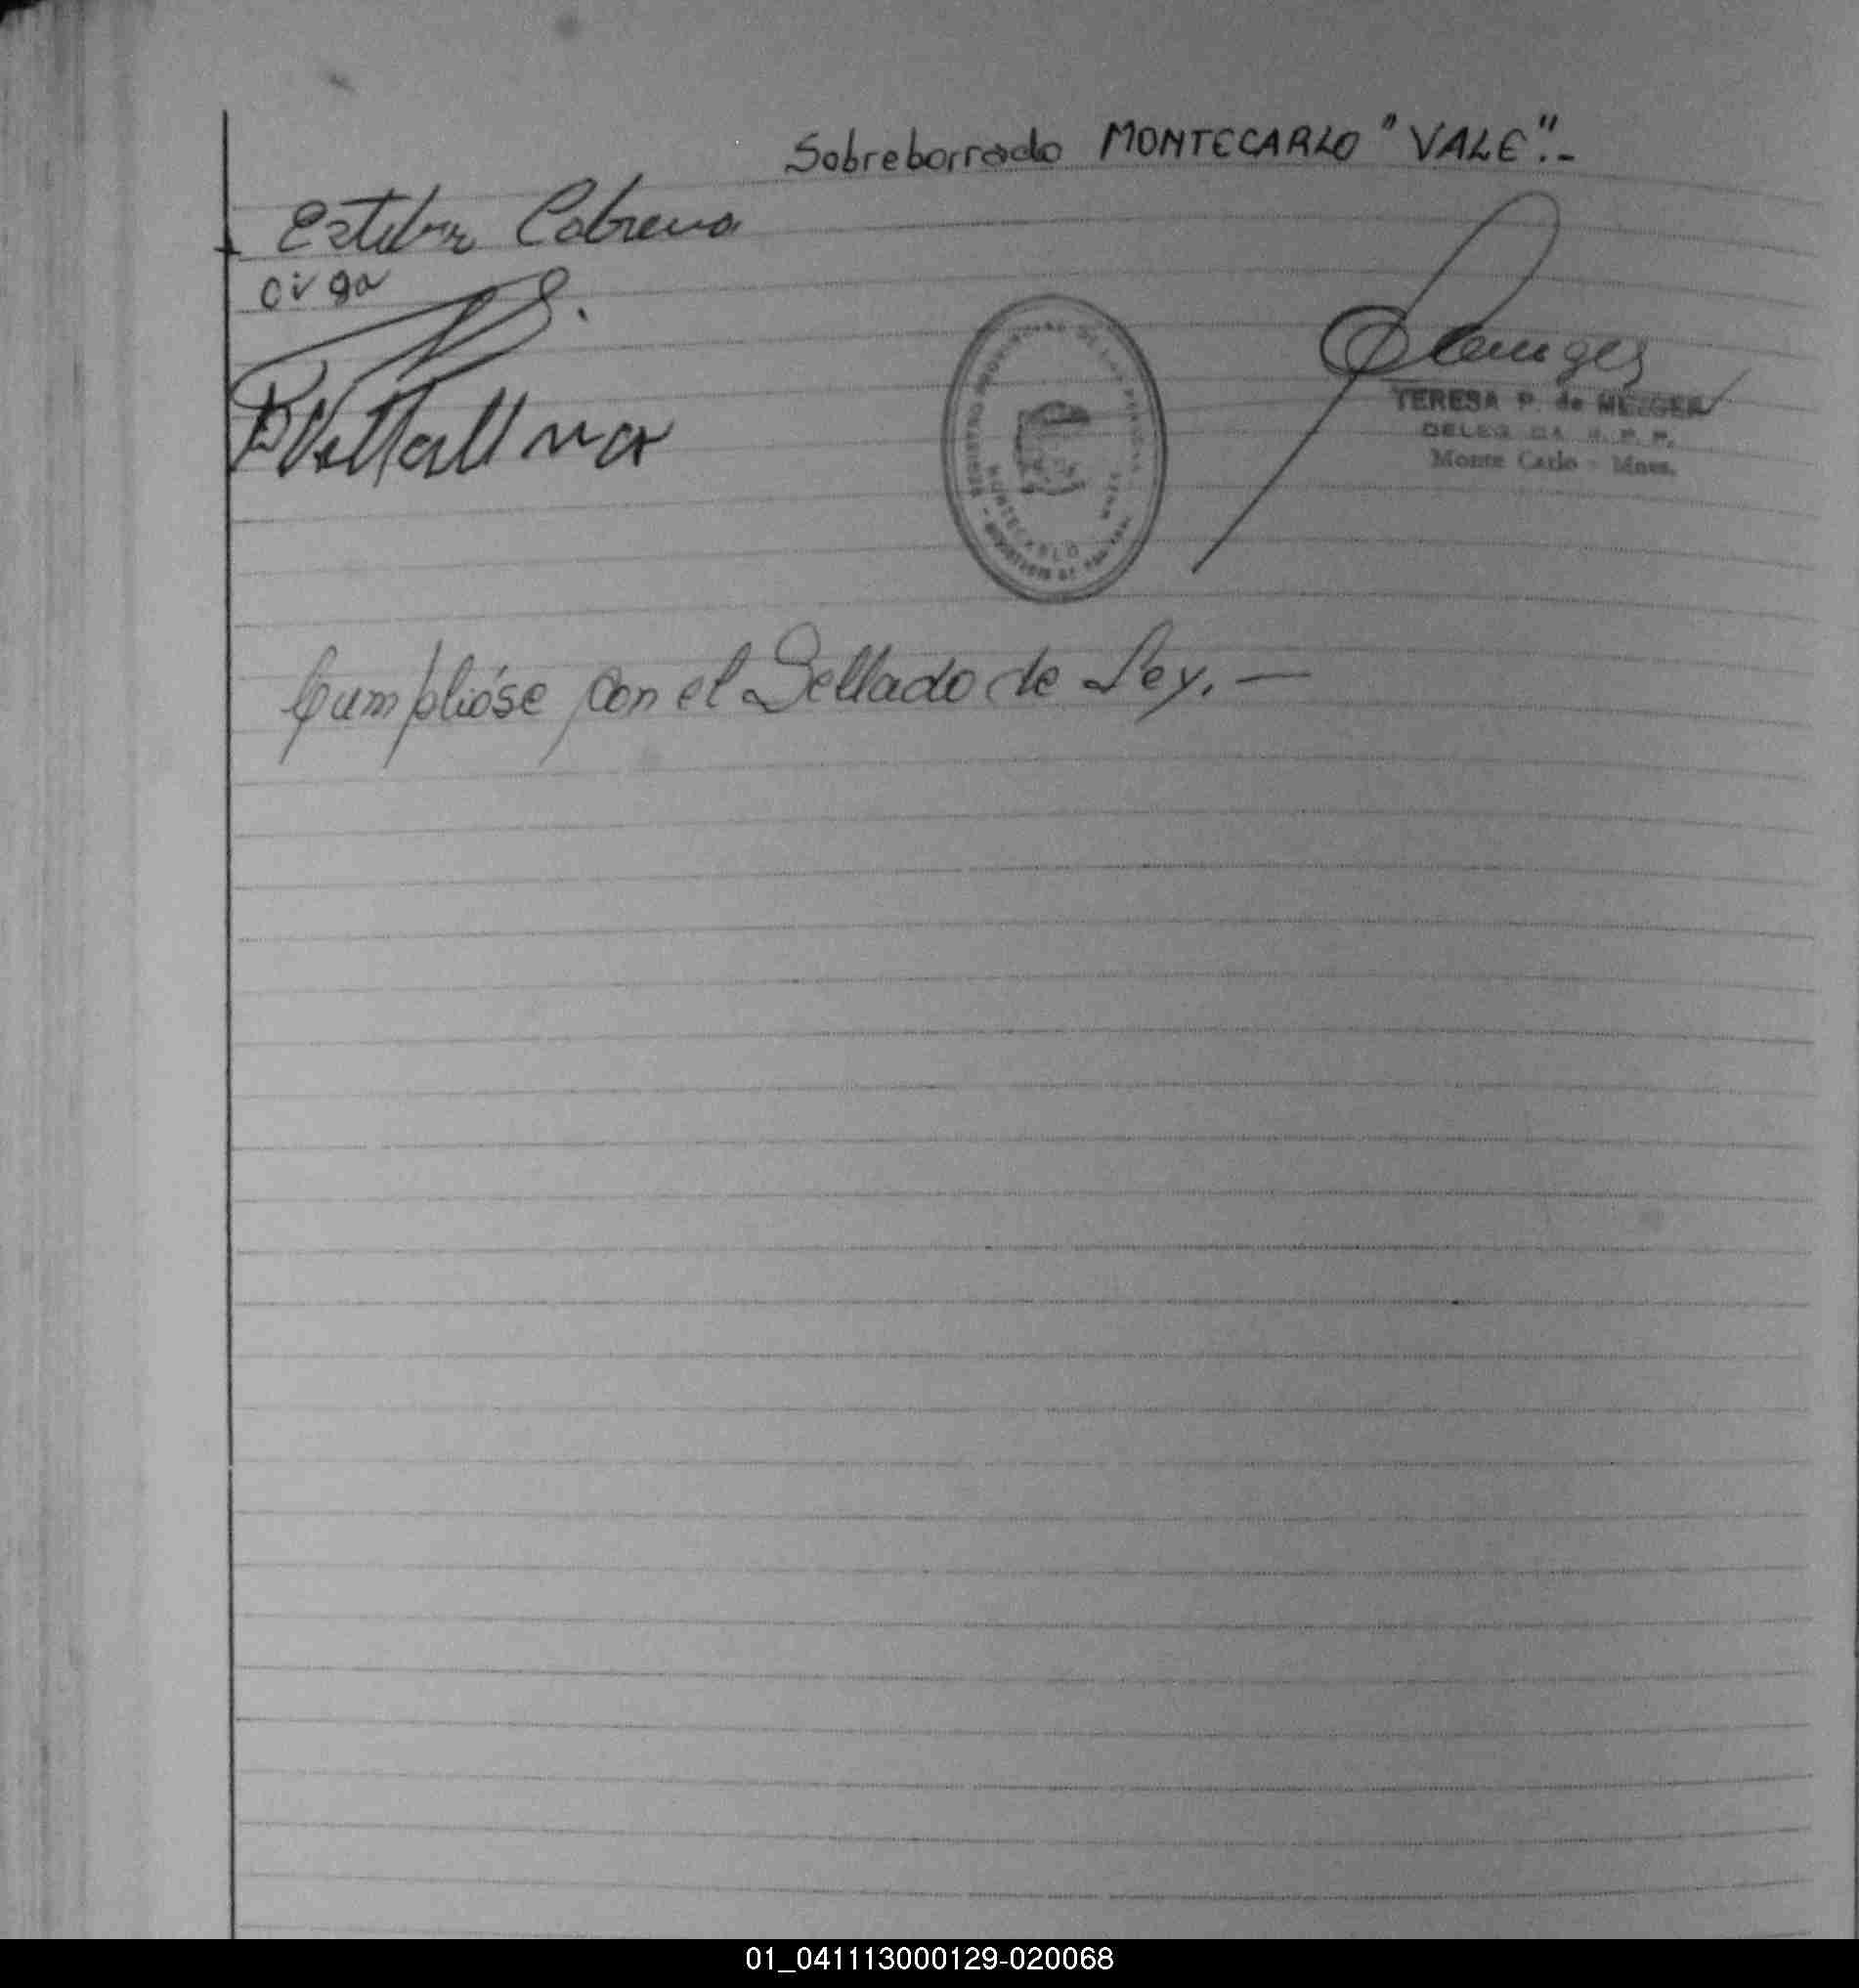 Sobreborrado MONTECARLO "VALE".-
Esteban Cabrera
REGISTRO PROVINCIAL DE LAS PERSONAS
MONTECARLO
TERESA P. de MEZGER
DELEGADA R. P. P.
Monte Carlo - Mnes.
Cumplióse con el Sellado de Ley. —
01_041113000129-020068